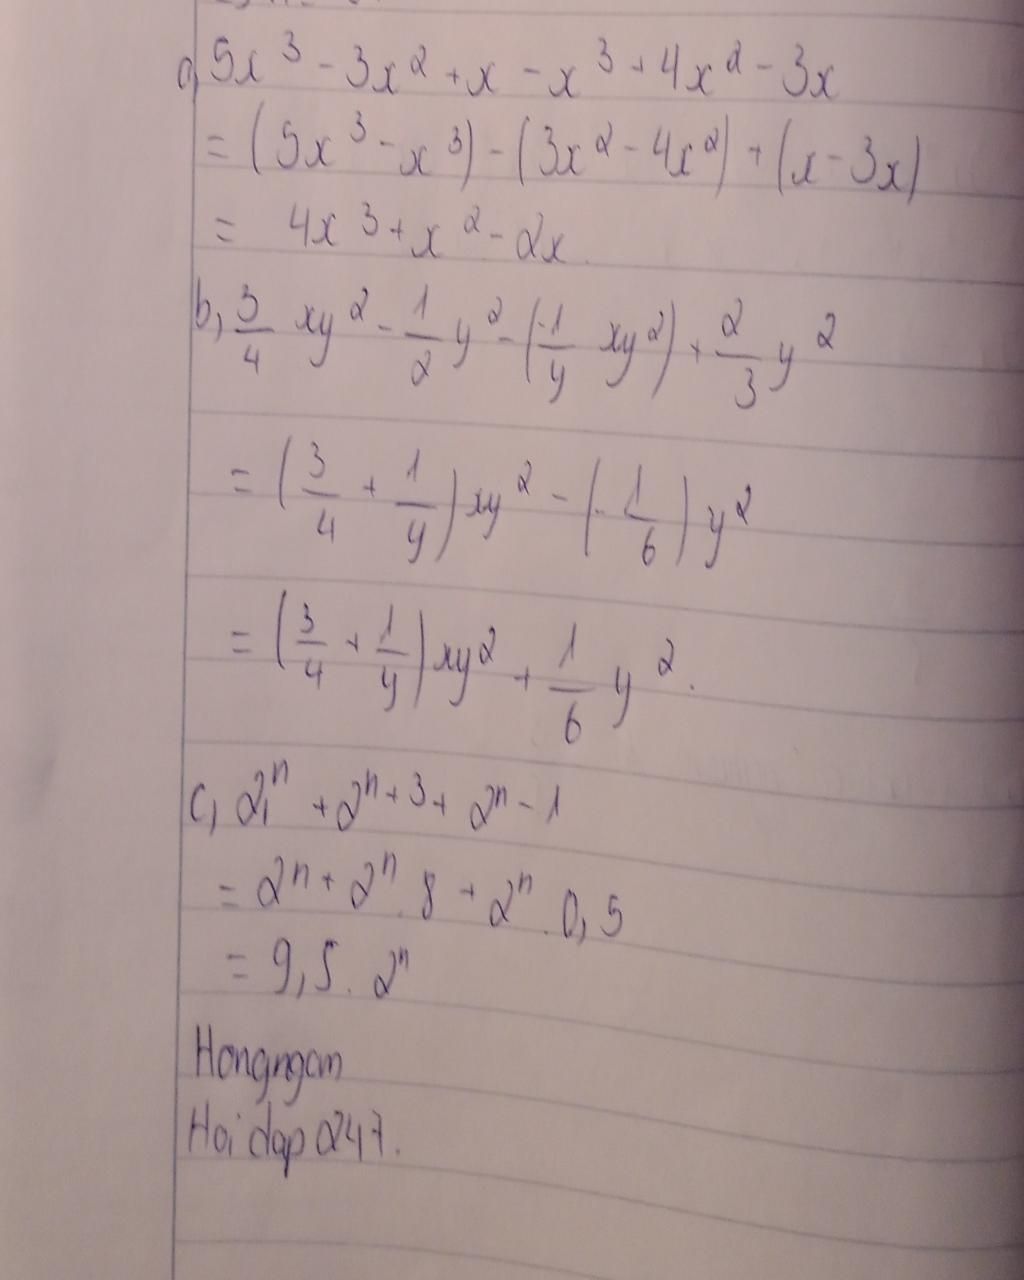 a, 5x³ - 3x² + x - x³ + 4x² - 3x
= (5x³ - x³) - (3x² - 4x²) + (x - 3x)
= 4x³ + x² - 2x
b, 3/4 xy² - 1/2 y² - (-1/y xy²) + 2/3 y²
= (3/4 + 1/y) xy² - (-1/6) y²
= (3/4 + 1/y) xy² + 1/6 y².
c, 2ⁿ + 2ⁿ⁺³ + 2ⁿ⁻¹
= 2ⁿ + 2ⁿ . 8 + 2ⁿ . 0,5
= 9,5 . 2ⁿ
Hongngam
Hoi dap 247.